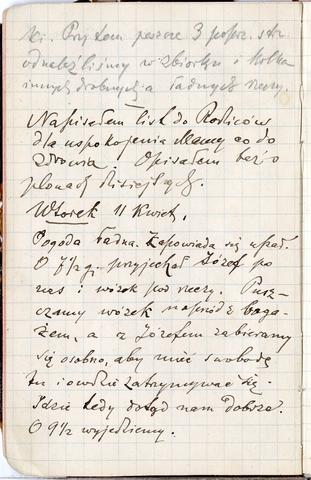 ki. Przytem jeszcze 3 poprz. str.
odnaleźliśmy w zbiorku i kilka
innych drobnych a ładnych rzeczy.
Napisałem list do Rodziców
dla uspokojenia Mamy co do
zdrowia. Opisałem też o
plonach dzisiejszych.
Wtorek 11 Kwiet.
Pogoda ładna. Zapowiada się upał.
O 7½ g. przyjechał Józef po
nas i wózek pod rzeczy. Pusz-
czamy wózek naprzód z baga-
żem, a z Józefem zabieramy
się osobno, aby mieć swobodę
tu i owdzie zatrzymywać się.
Idzie tedy dotąd nam "dobrze".
O 9½ wyjedliśmy.